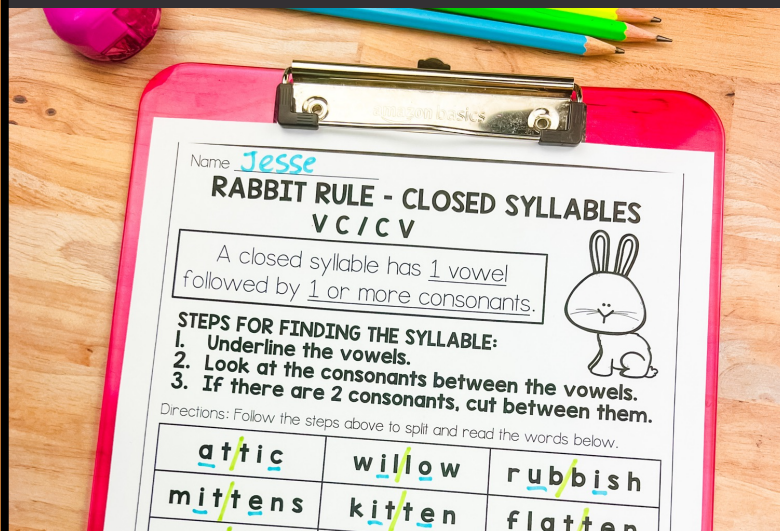 amazon basics
Name Jesse
RABBIT RULE - CLOSED SYLLABLES
VC/CV
A closed syllable has 1 vowel
followed by 1 or more consonants.
STEPS FOR FINDING THE SYLLABLE:
1. Underline the vowels.
2. Look at the consonants between the vowels.
3. If there are 2 consonants, cut between them.
Directions: Follow the steps above to split and read the words below.
at/tic wil/low rub/bish
mit/tens kit/ten flatten